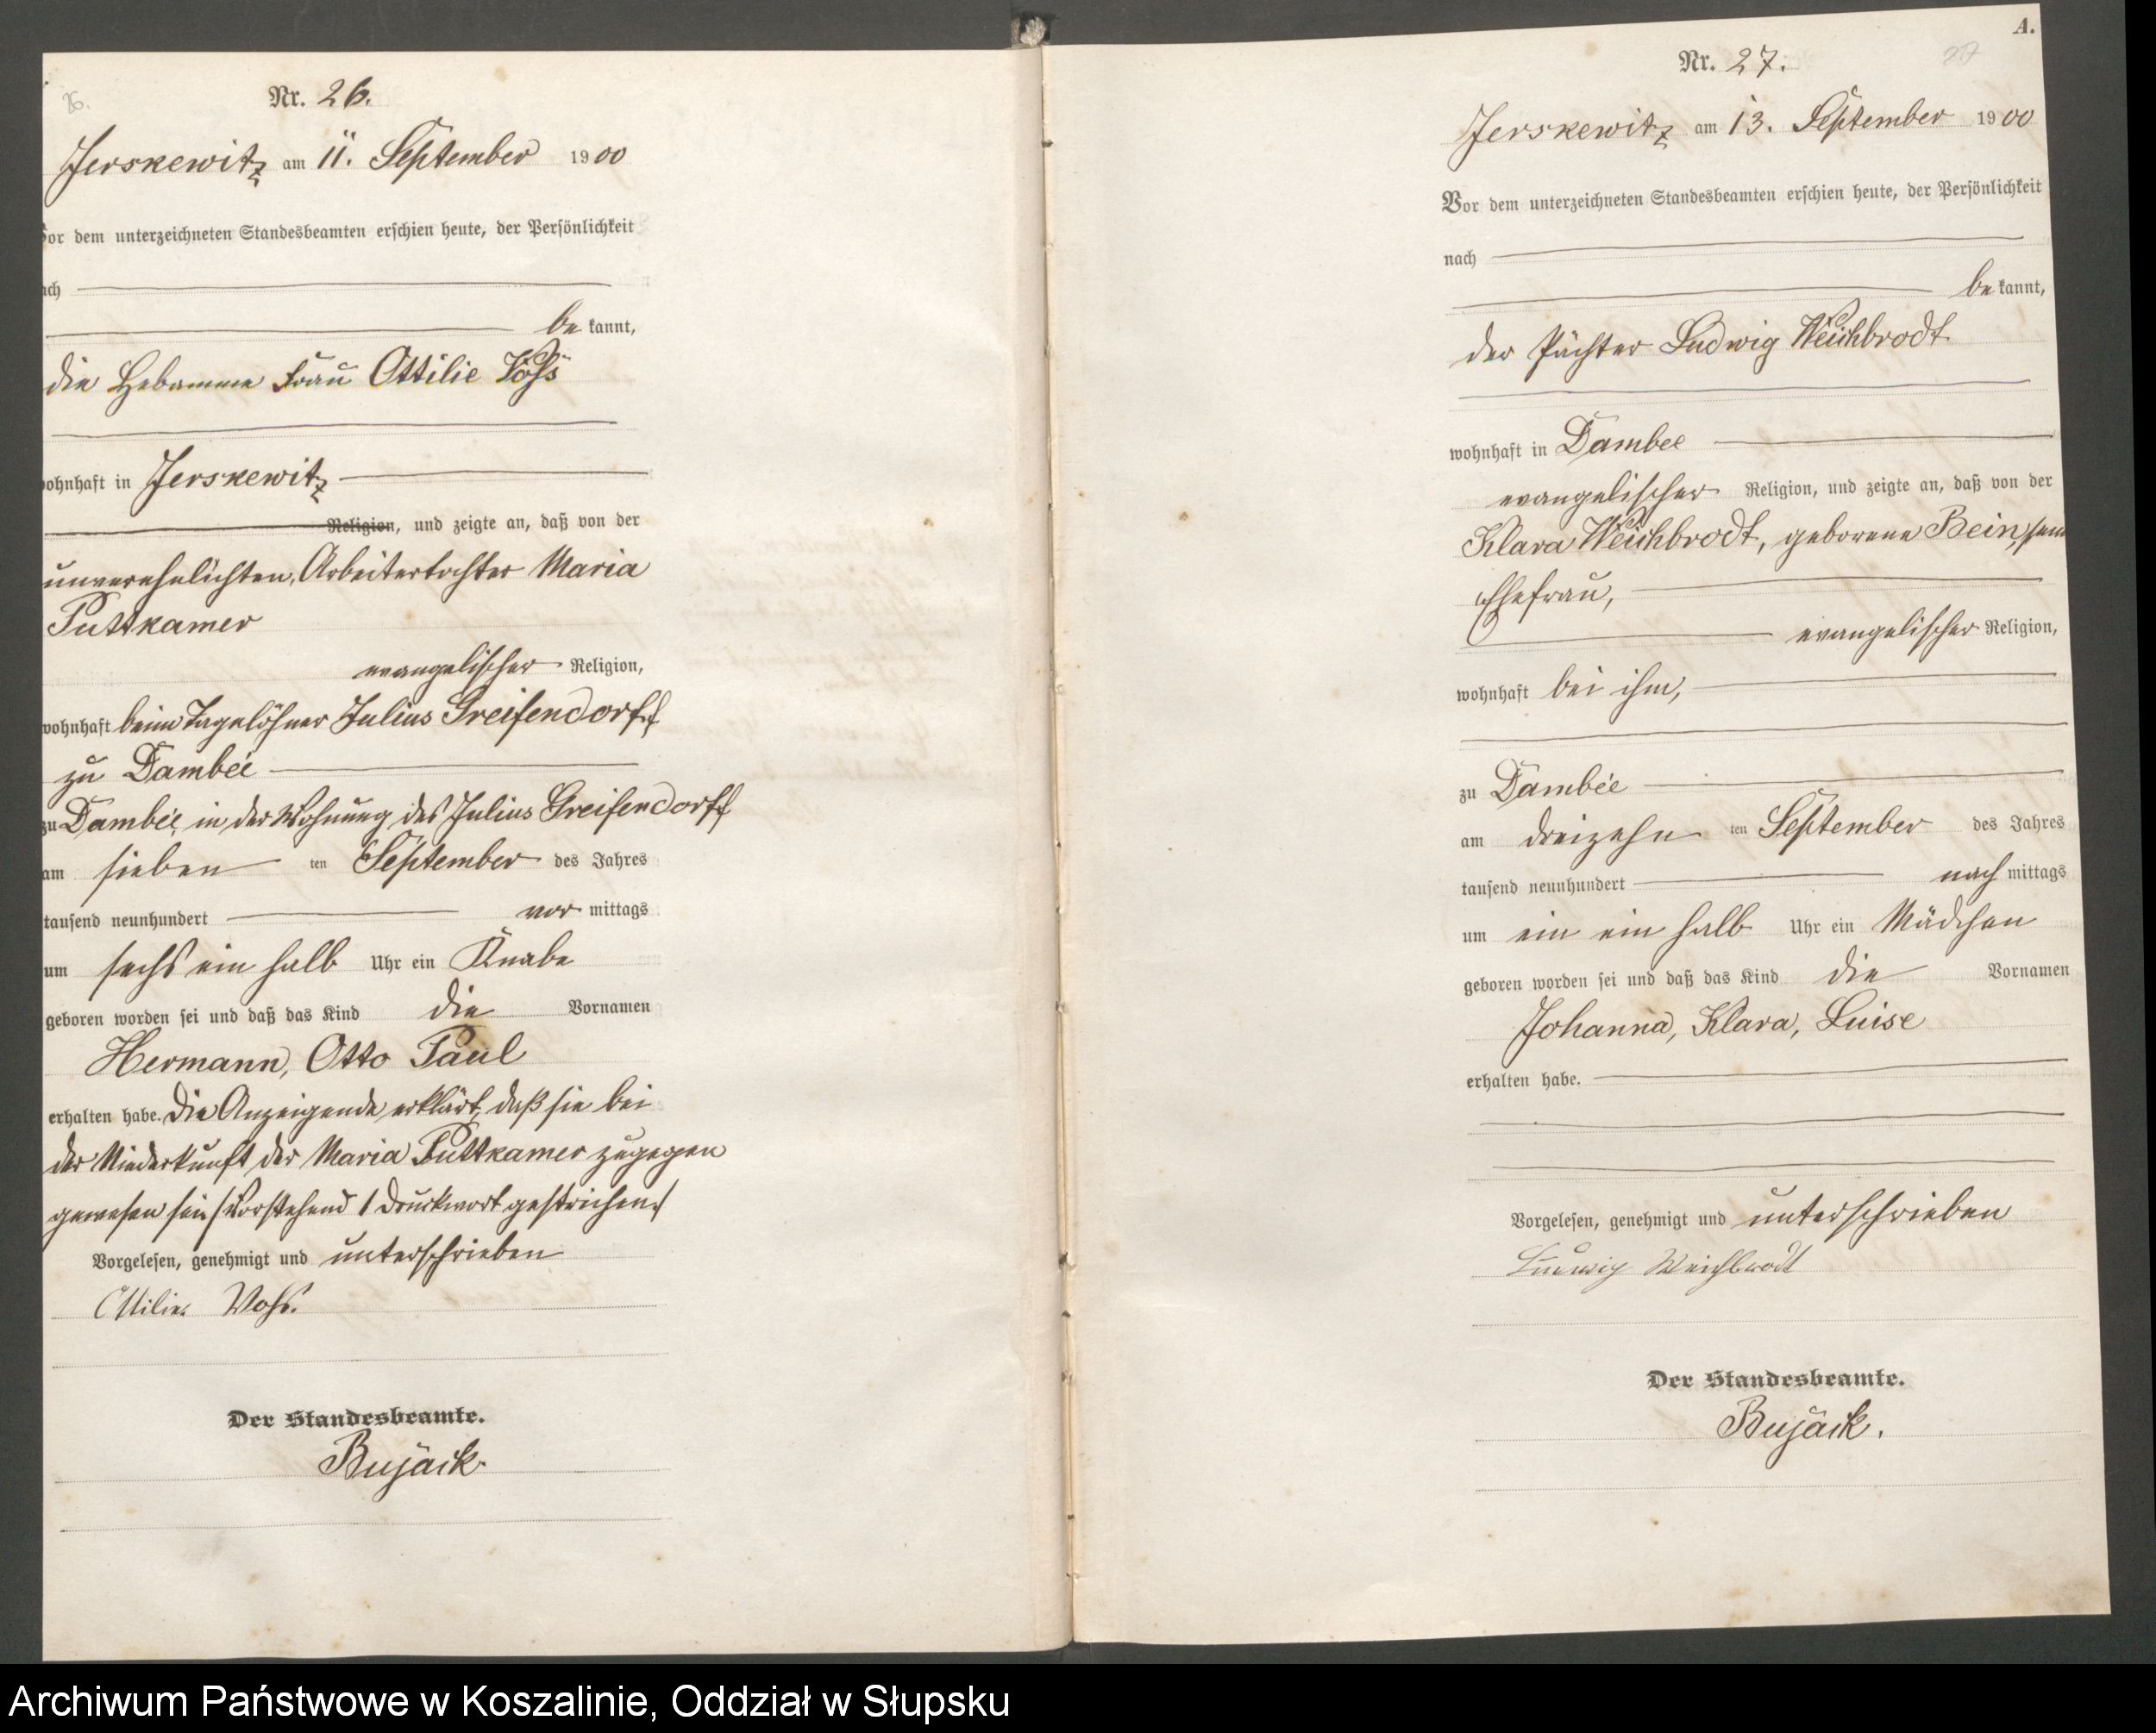 26.
Nr. 26.
Jerskewitz am 11. September 1900
Vor dem unterzeichneten Standesbeamten erschien heute, der Persönlichkeit
nach
be kannt,
die Hebamme Frau Ottilie Voß
wohnhaft in Jerskewitz
Religion, und zeigte an, daß von der
unverehelichten, Arbeitertochter Maria
Puttkamer
evangelischer Religion,
wohnhaft beim Tagelöhner Julius Greifendorff
zu Dambee
zu Dambee, in der Wohnung des Julius Greifendorff
am sieben ten September des Jahres
tausend neunhundert vor mittags
um sechs ein halb Uhr ein Knabe
geboren worden sei und daß das Kind die Vornamen
Hermann, Otto Paul
erhalten habe. Die Anzeigende erklärt, daß sie bei
der Niederkunft der Maria Puttkamer zugegen
gewesen sei (Vorstehend 1 Druckwort gestrichen)
Vorgelesen, genehmigt und unterschrieben
Ottilie Voß.
Der Standesbeamte.
Bujack.
A.
27
Nr. 27.
Jerskewitz am 13. September 1900
Vor dem unterzeichneten Standesbeamten erschien heute, der Persönlichkeit
nach
be kannt,
der Pächter Ludwig Weichbrodt
wohnhaft in Dambee
evangelischer Religion, und zeigte an, daß von der
Klara Weichbrodt, geborene Bein, sein
Ehefrau,
evangelischer Religion,
wohnhaft bei ihm,
zu Dambee
am dreizehn ten September des Jahres
tausend neunhundert nach mittags
um ein ein halb Uhr ein Mädchen
geboren worden sei und daß das Kind die Vornamen
Johanna, Klara, Luise
erhalten habe.
Vorgelesen, genehmigt und unterschrieben
Ludwig Weichbrodt
Der Standesbeamte.
Bujack.
Archiwum Państwowe w Koszalinie, Oddział w Słupsku